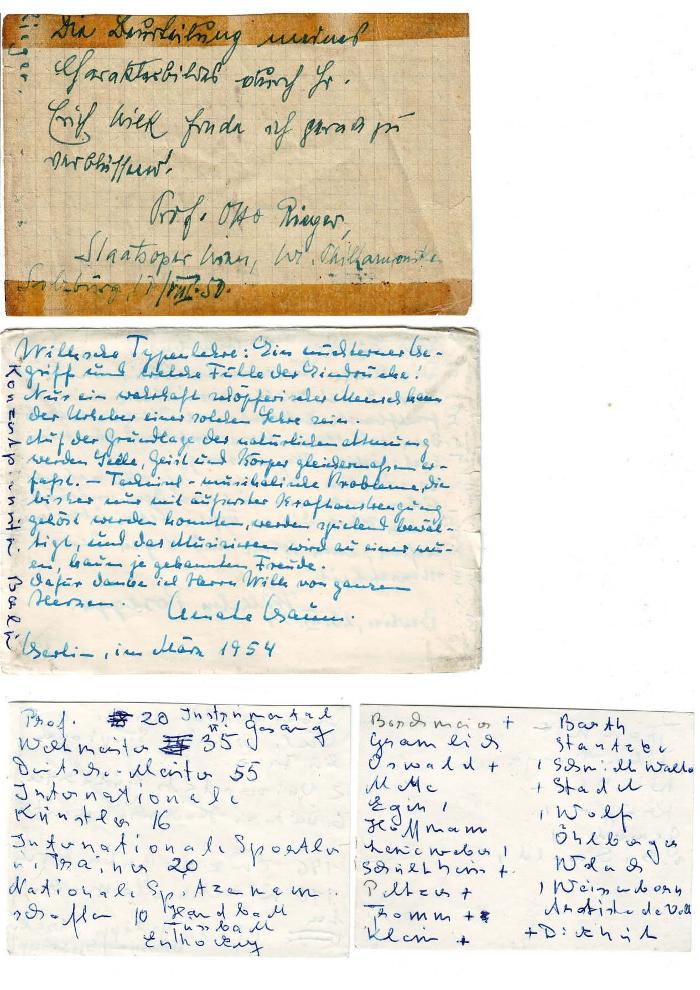 Die Beurteilung meines
Charakterbildes durch Hr.
Erich Wilk finde ich geradezu
verblüffend!
Prof. Otto Rieger,
Staatsoper Wien, W. Philharmonik
Salzburg, VIII. 50.
Rieger.
Wilksche Typenlehre: Ein nüchterner Be-
griff und welche Fülle der Eindrücke!
Nur ein wahrhaft schöpferischer Mensch kann
der Urheber einer solchen Lehre sein.
Auf der Grundlage der natürlichen Atmung
werden Seele, Geist und Körper gleichermaßen er-
faßt. – Technisch-musikalische Probleme, die
bisher nur mit äußerster Kraftanstrengung
gelöst werden konnten, werden spielend bewäl-
tigt, und das Musizieren wird zu einer neu-
en, kaum je gekannten Freude.
Dafür danke ich Herrn Wilk von ganzem
Herzen.
Berlin, im März 1954
Konzertpianistin Berlin
Prof. 20 Instrumental
u. Gesang
Weltmeister 35
Deutsche-Meister 55
Internationale
Künstler 16
Internationale Sportler
u. Trainer 20
Nationale Spitzenmann
schaften 10 Handball
Fussball
Eishockey
+ – Barth
Oswald + , Schmidt
+ , Stadel
, Wolf
Hoffmann Öhlberger
+
Peltzer + , Weissenborn
Thomm +
Klein +